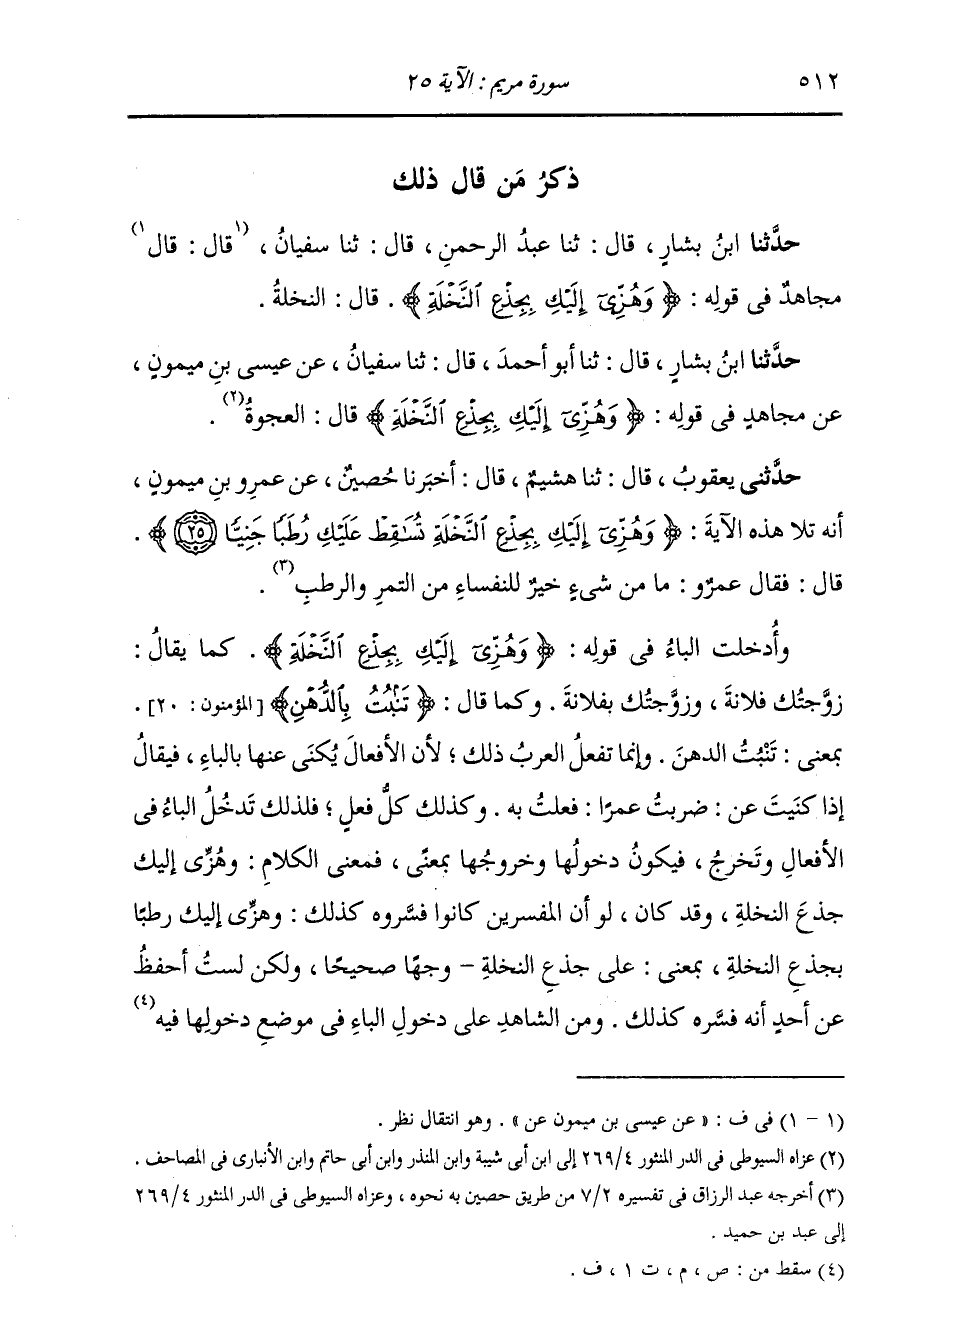 ٥١٢ سورة مريم : الآية ٢٥
ذكرُ مَن قال ذلك
حدَّثنا ابنُ بشارٍ ، قال : ثنا عبدُ الرحمنِ ، قال : ثنا سفيانُ ، (١قال : قال١)
مجاهدٌ فى قولِه : ﴿ وَهُزِّىٓ إِلَيْكِ بِجِذْعِ ٱلنَّخْلَةِ ﴾ . قال : النخلةُ .
حدَّثنا ابنُ بشارٍ ، قال : ثنا أبو أحمدَ ، قال : ثنا سفيانُ ، عن عيسى بنِ ميمونٍ ،
عن مجاهدٍ فى قولِه : ﴿ وَهُزِّىٓ إِلَيْكِ بِجِذْعِ ٱلنَّخْلَةِ ﴾ قال : العجوةُ(٢) .
حدَّثنى يعقوبُ ، قال : ثنا هشيمٌ ، قال : أخبَرنا حُصينٌ ، عن عمرِو بنِ ميمونٍ ،
أنه تلا هذه الآيةَ : ﴿ وَهُزِّىٓ إِلَيْكِ بِجِذْعِ ٱلنَّخْلَةِ تُسَٰقِطْ عَلَيْكِ رُطَبًا جَنِيًّا ٢٥ ﴾ .
قال : فقال عمرٌو : ما من شىءٍ خيرٌ للنفساءِ من التمرِ والرطبِ(٣) .
وأُدخلت الباءُ فى قولِه : ﴿ وَهُزِّىٓ إِلَيْكِ بِجِذْعِ ٱلنَّخْلَةِ ﴾ . كما يقالُ :
زوَّجتُك فلانةَ ، وزوَّجتُك بفلانةَ . وكما قال : ﴿ تَنۢبُتُ بِٱلدُّهْنِ ﴾ [المؤمنون : ٢٠] .
بمعنى : تَنْبُتُ الدهنَ . وإنما تفعلُ العربُ ذلك ؛ لأن الأفعالَ يُكنَى عنها بالباءِ ، فيقالُ
إذا كنَيتَ عن : ضربتُ عمرًا : فعلتُ به . وكذلك كلُّ فعلٍ ؛ فلذلك تَدخُلُ الباءُ فى
الأفعالِ وتَخرجُ ، فيكونُ دخولُها وخروجُها بمعنًى ، فمعنى الكلامِ : وهُزِّى إليك
جذعَ النخلةِ ، وقد كان ، لو أن المفسرين كانوا فسَّروه كذلك : وهزِّى إليك رطبًا
بجذعِ النخلةِ ، بمعنى : على جذعِ النخلةِ - وجهًا صحيحًا ، ولكن لستُ أحفظُ
عن أحدٍ أنه فسَّره كذلك . ومن الشاهدِ على دخولِ الباءِ فى موضعِ دخولِها فيه(٤)
(١ - ١) فى ف : « عن عيسى بن ميمون عن » . وهو انتقال نظر .
(٢) عزاه السيوطى فى الدر المنثور ٢٦٩/٤ إلى ابن أبى شيبة وابن المنذر وابن أبى حاتم وابن الأنبارى فى المصاحف .
(٣) أخرجه عبد الرزاق فى تفسيره ٧/٢ من طريق حصين به نحوه ، وعزاه السيوطى فى الدر المنثور ٢٦٩/٤
إلى عبد بن حميد .
(٤) سقط من : ص ، م ، ت ١ ، ف .